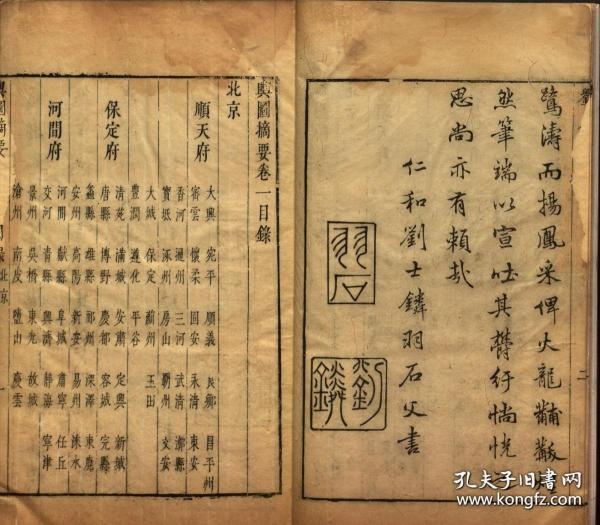 驚濤而揚鳳采俾火龍黼黻
然筆端以宣吐其鬱紆惝怳之
思尚亦有賴哉
仁和劉士鏻羽石父書
羽石
劉士鏻
二
輿圖摘要卷一目錄
北京
順天府 大興 宛平 順義 良鄉 昌平州
密雲 懷柔 固安 永清 東安
香河 通州 三河 武清 漷縣
寶坻 涿州 房山 霸州 文安
大城 保定 薊州 玉田
豐潤 遵化 平谷
保定府 清苑 滿城 安肅 定興 新城
唐縣 博野 慶都 容城 完縣
蠡縣 雄縣 祁州 深澤 束鹿
安州 高陽 新安 易州 淶水
河間府 河間 獻縣 阜城 肅寧 任丘
交河 青縣 興濟 靜海 寧津
景州 吳橋 東光 故城
滄州 南皮 鹽山 慶雲
輿圖摘要 目錄北京 一
孔夫子旧书网
www.kongfz.com